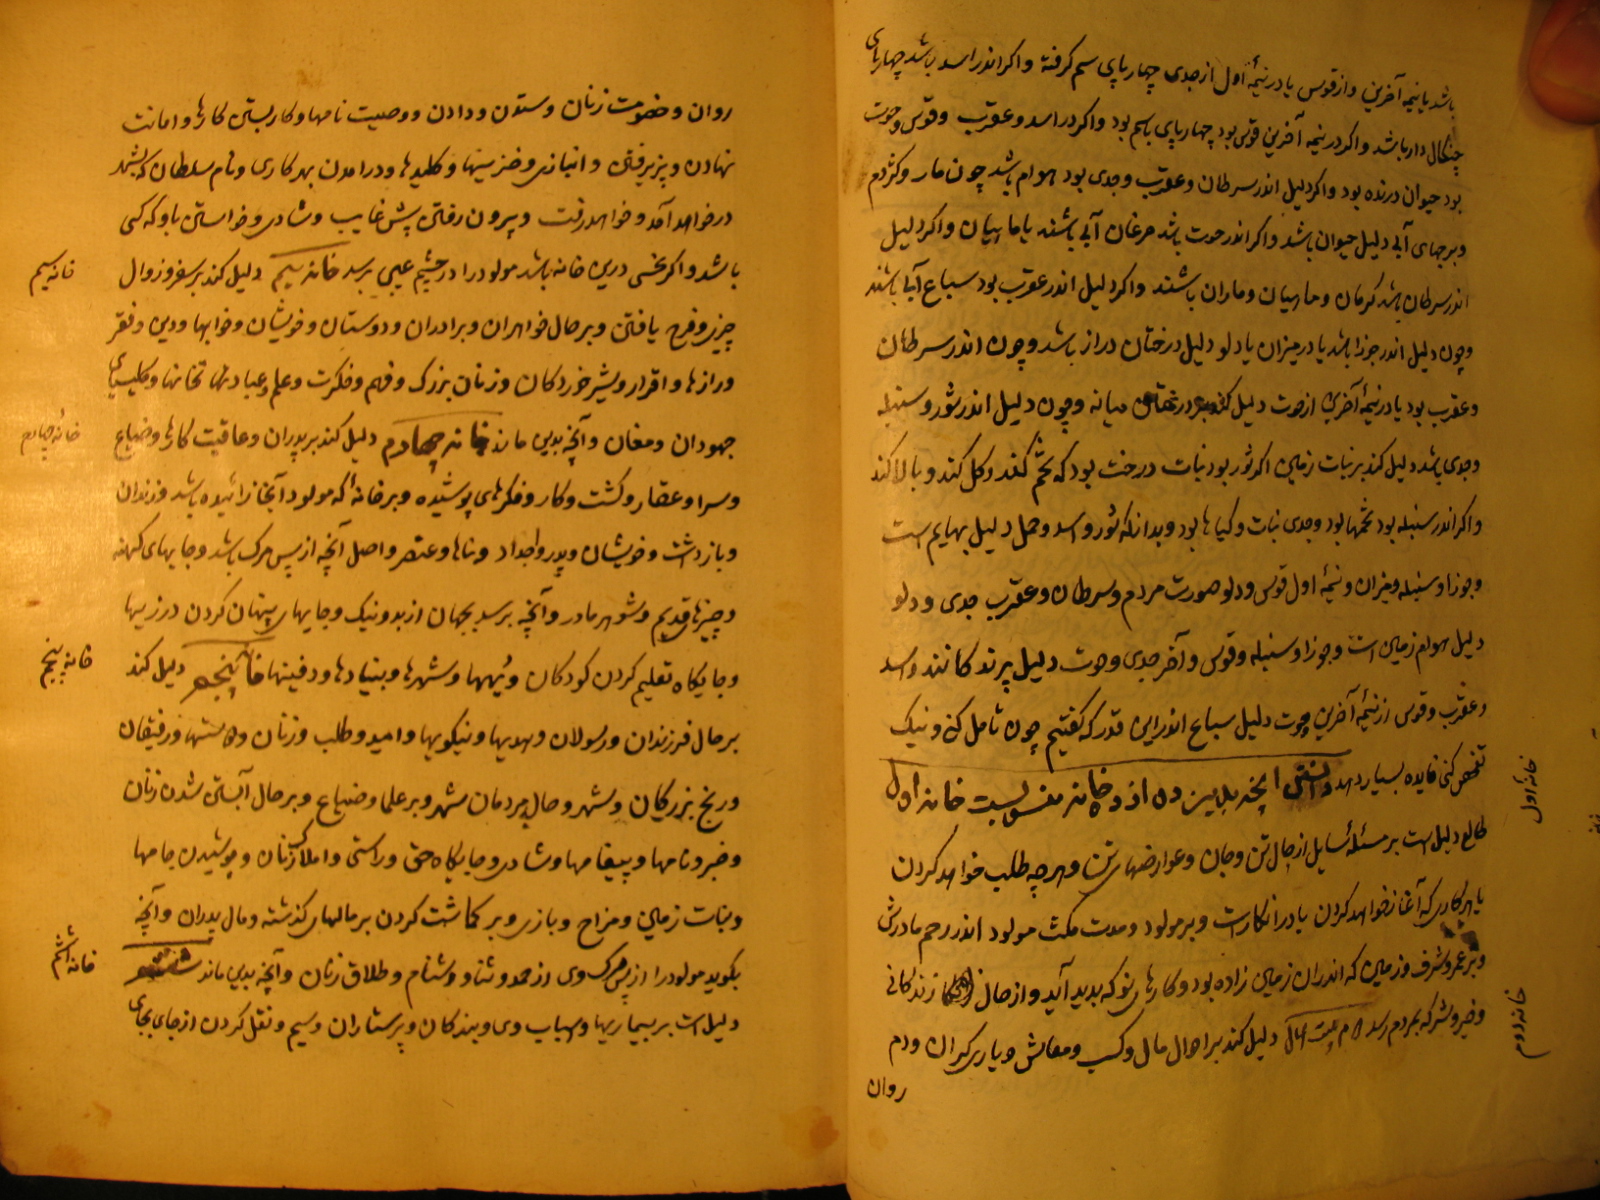 باشد یا نیمه آخرین و از قوس یا در نیمهٔ اول از جدی چهارپای سم کرفته و اکر اندر اسد باشد چهارپای
چنکال دار باشد و اکر در نیمه آخرین قوس بود چهارپای باسم بود و اکر در اسد و عقرب و قوس و حوت
بود حیوان درنده بود و اکر دلیل اندر سرطان و عقرب و جدی بود هوام باشد چون مار و کژدم
و برجهای آبی دلیل حیوان باشد و اکر اندر حوت باشد مرغان آبی باشند یا ماهیان و اکر دلیل
اندر سرطان باشد کرمان و ماهیان و ماران باشند و اکر دلیل اندر عقرب بود سباع آبی باشند
و چون دلیل اندر جوزا باشد یا در میزان یا دلو دلیل درختان دراز باشد و چون اندر سرطان
و عقرب بود یا در نیمهٔ آخرین از حوت دلیل کند بر درختان میانه و چون دلیل اندر ثور و سنبله
و جدی باشد دلیل کند بر نبات زمین اکر ثور بود نبات درخت بود که تخم کند و کل کند و بالا کند
و اکر اندر سنبله بود تخمها بود و جدی نبات و کیاها بود و بدانکه ثور و اسد و حمل دلیل بهایم است
و جوزا و سنبله و میزان و نیمهٔ اول قوس و دلو صورت مردم و سرطان و عقرب جدی و دلو
دلیل هوام زمین است و جوزا و سنبله و قوس و آخر جدی و حوت دلیل پرندکانند و اسد
و عقرب و قوس از نیمه آخرین و حوت دلیل سباع اندر این قدر که کفتیم چون تامل کنی و نیک
تفحص کنی فایده بسیار دهد دانستن انچه بدین دوازده خانه منسوبست خانه اول
خانهٔ اول
طالع دلیل است بر مسئلهٔ سایل از حال تن و جان و عوارضهای تن و هرچه طلب خواهد کردن
یا هر کاری که آغاز خواهد کردن یا در انکارست و بر مولود و مدت مکث مولود اندر رحم مادرش
و بر عمر و شرف و زمین که اندران زمین زاده بود و کارهای نو که پدید آید و از حال زندکانی
و خیر و شر که بمردم رسد دوم بیت المال دلیل کند بر احوال مال و کسب و معاش و یاری کران و دم
خانه دوم
روان
روان و خصومت زنان و ستدن و دادن و وصیت نامها و کار بستن کارها و امانت
نهادن و پزیرفتن و انبازی و خزینها و کلیدها و در امدن بهر کاری و نام سلطان که بشهر
در خواهد آمد و خواهد رفت و بیرون رفتن پیش غایب و شادی و خواستن باو که کی
باشد و اکر نحسی درین خانه باشد مولود را در چشم عیبی برسد خانه سیم دلیل کند بر سفر و زوال
خانه سیم
چیز و فرح یافتن و بر حال خواهران و برادران و دوستان و خویشان و خوابها و دین و فقر
و رازها و اقرار و شیر خوردکان و زنان بزرک و فهم و فکرت و علم و عبادتها بتخانها و کلیسیای
جهودان و مغان و آنچه بدین ماند خانه چهارم دلیل کند بر پدران و عاقبت کارها و ضیاع
خانهٔ چهارم
و سرا و عقار و کشت و کار و فکرهای پوشیده و بر خانهٔ که مولود آنجا زائیده باشد و زندان
و بازداشت و خویشان و پدر و اجداد و بناها و عنصر و اصل آنچه از پس مرک باشد و جایهای کهنه
و چیزهای قدیم و شوهر مادر و آنچه برسد بجهان از بد و نیک و جایهای پنهان کردن درزیها
و جایکاه تعلیم کردن کودکان و شهرها و بنیادها و دفینها خانه پنجم دلیل کند
خانه پنجم
بر حال فرزندان و رسولان و هدیها و نیکویها و امید و طلب و زنان و دوستها و رفیقان
و رنج بزرکان و شهر و حال مردمان شهر و بر علما و ضیاع و بر حال آبستن شدن زنان
و خبر و نامها و پیغامها و شادی و جایکاه حق و راستی و املاک زنان و پوشیدن جامها
و نبات زمین و مزاح و بازی و بر کماشت کردن بر مالهای کذشته و مال پدران و آنچه
بکوید مولود را از پس مرک وی از حمد و ثنا و دشنام و طلاق زنان و آنچه بدین ماند ششم
خانه ششم
دلیل است بر بیماریها و اسباب وی و بندکان و پرستاران و سیم و نقل کردن از جای بجای